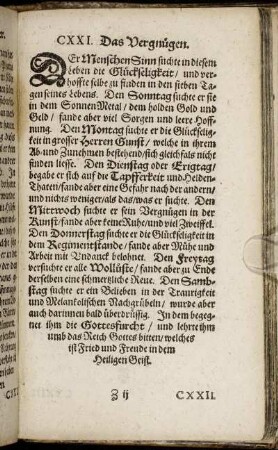 CXXI. Das Vergnügen.
DEr Menschen Sinn suchte in diesem
Leben die Glückseligkeit/ und ver-
hoffte selbe zu finden in den sieben Ta-
gen seines Lebens. Den Sonntag suchte er sie
in dem Sonnen Metal/ dem holden Gold und
Geld/ fande aber viel Sorgen und leere Hoff-
nung. Den Montag suchte er die Glückselig-
keit in grosser Herren Gunst/ welche in ihrem
Ab-und Zunehmen bestehend/sich gleichfals nicht
finden liesse. Den Dienstag oder Erigtag/
begabe er sich auf die Tapfferkeit und Helden-
Thaten/fande aber eine Gefahr nach der andern/
und nichts weniger/als das/was er suchte. Den
Mittwoch suchte er sein Vergnügen in der
Kunst/fande aber keine Ruhe/und viel Zweiffel.
Den Donnerstag suchte er die Glückseligkeit in
dem Regimentstande/ fande aber Mühe und
Arbeit mit Undanck belohnet. Den Freytag
versuchte er alle Wollüste/ fande aber zu Ende
derselben eine schmertzliche Reue. Den Samb-
stag suchte er ein Belieben in der Traurigkeit
und Melankolischen Nachgrübeln/ wurde aber
auch darinnen bald überdrüssig. In dem begeg-
net ihm die Gottesfurcht/ und lehrte ihm
umb das Reich Gottes bitten/welches
ist Fried und Freude in dem
Heiligen Geist.
ij CXXII.